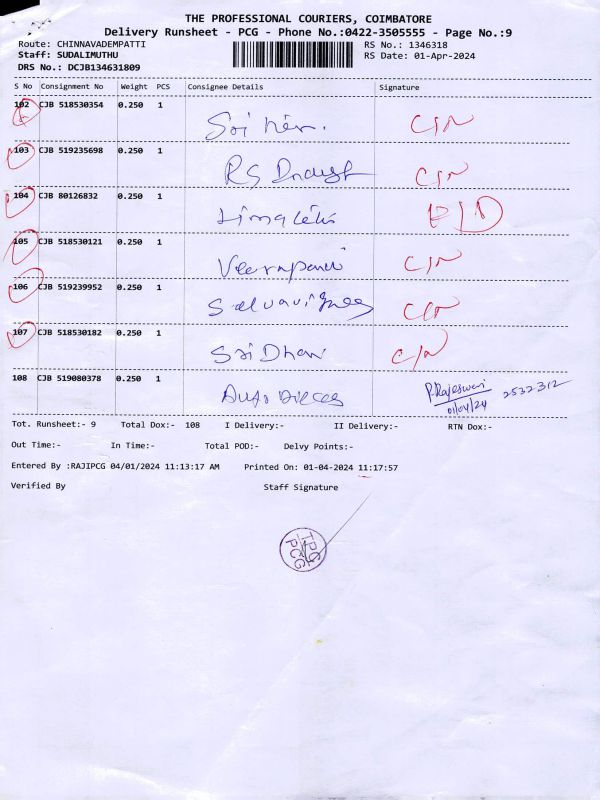 THE PROFESSIONAL COURIERS, COIMBATORE
Delivery Runsheet - PCG - Phone No.:0422-3505555 - Page No.:9
Route: CHINNAVADEMPATTI RS No.: 1346318
Staff: SUDALIMUTHU RS Date: 01-Apr-2024
DRS No.: DCJB134631809
S No Consignment No Weight PCS Consignee Details Signature
102 CJB 518530354 0.250 1
C/N
103 CJB 519235698 0.250 1
RS C/N
104 CJB 80126832 0.250 1
105 CJB 518530121 0.250 1
C/N
106 CJB 519239952 0.250 1
C/N
107 CJB 518530182 0.250 1
Sri Dhan C/N
108 CJB 519080378 0.250 1
P. Rajeswari 2532312
01/04/24
Tot. Runsheet:- 9 Total Dox:- 108 I Delivery:- II Delivery:- RTN Dox:-
Out Time:- In Time:- Total POD:- Delvy Points:-
Entered By :RAJIPCG 04/01/2024 11:13:17 AM Printed On: 01-04-2024 11:17:57
Verified By Staff Signature
TPC
PCG